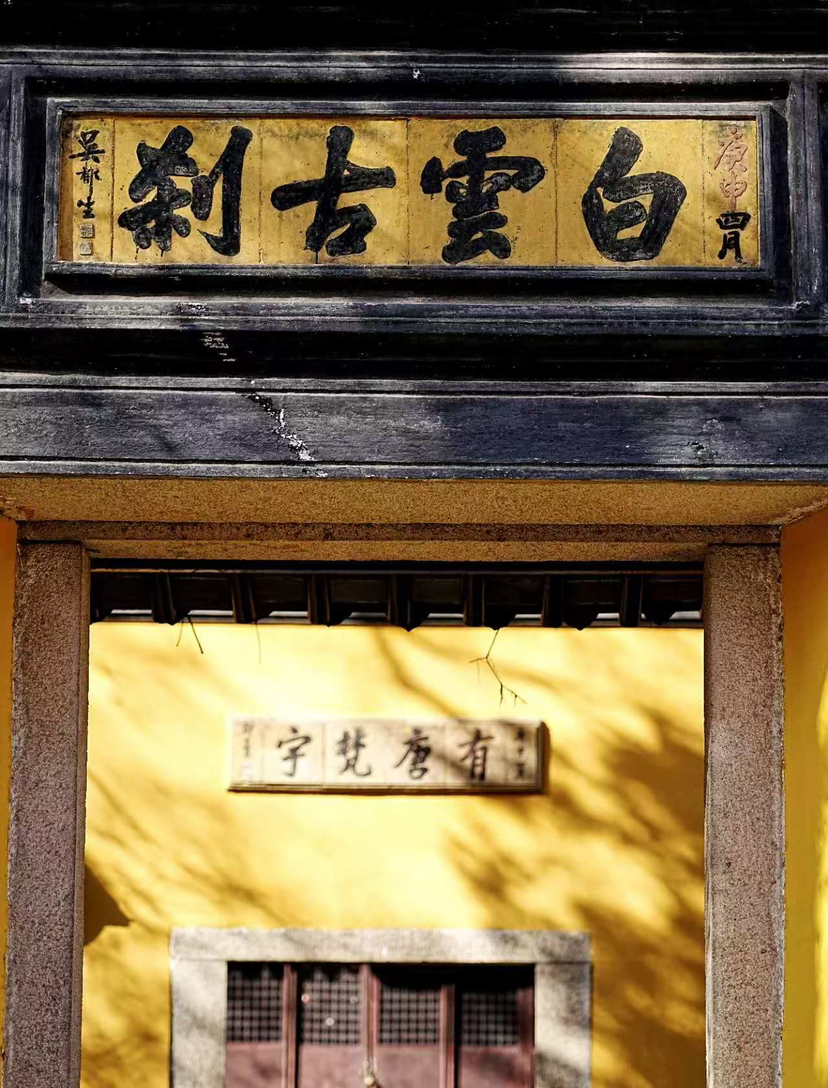 庚申四月
白雲古刹
吳㧕生
有唐梵宇